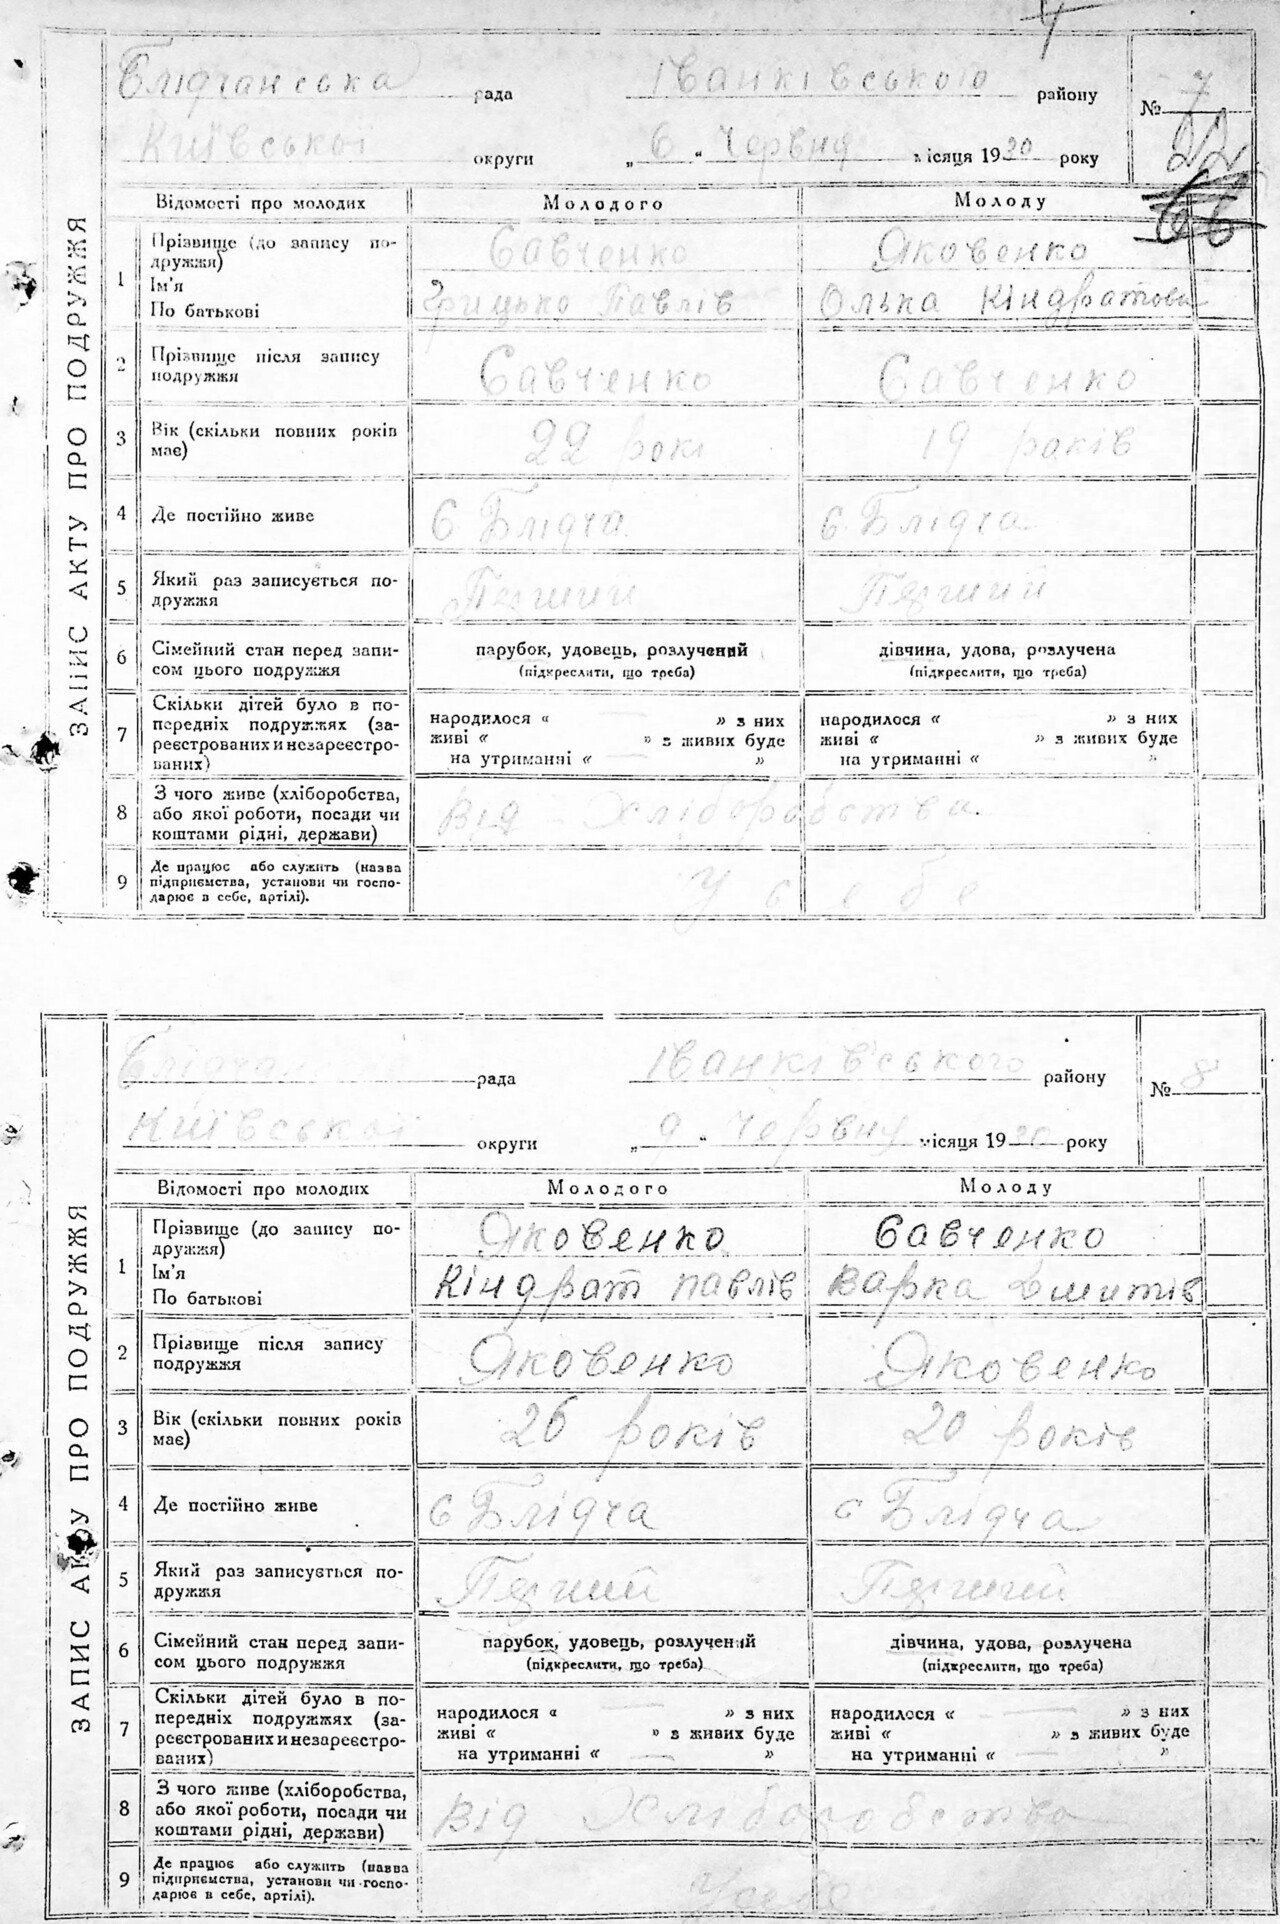 4
Блідчанська рада Іванківського району № 7
Київської округи „ 6 “ Червня місяця 1930 року 22
66
ЗАПИС АКТУ ПРО ПОДРУЖЖЯ
Відомості про молодих Молодого Молоду
1 Прізвище (до запису по-
дружжя) Савченко Яковенко
Ім'я
По батькові Грицько Павлів Олька Кіндратова
2 Прізвище після запису
подружжя Савченко Савченко
3 Вік (скільки повних років
має) 22 рокі 19 років
4 Де постійно живе с Блідча с Блідча
5 Який раз записується по-
дружжя Перший Перший
6 Сімейний стан перед запи-
сом цього подружжя парубок, удовець, розлучений дівчина, удова, розлучена
(підкреслити, що треба) (підкреслити, що треба)
7 Скільки дітей було в по-
передніх подружжях (за-
реєстрованих и незареєстро-
ваних) народилося “ — ” з них народилося “ ” з них
живі “ ” з живих буде живі “ ” з живих буде
на утриманні “ — ” на утриманні “ — ”
8 З чого живе (хліборобства,
або якої роботи, посади чи
коштами рідні, держави) Від - Хліборобства
9 Де працює або служить (назва
підприємства, установи чи госпо-
дарює в себе, артілі). У себе
рада Іванківського району № 8
Київської округи „ 9 “ Червня місяця 1930 року
ЗАПИС АКТУ ПРО ПОДРУЖЖЯ
Відомості про молодих Молодого Молоду
1 Прізвище (до запису по-
дружжя) Яковенко Савченко
Ім'я
По батькові Кіндрат Павлів Варка Дмитів
2 Прізвище після запису
подружжя Яковенко Яковенко
3 Вік (скільки повних років
має) 26 років 20 років
4 Де постійно живе с Блідча с Блідча
5 Який раз записується по-
дружжя Перший Перший
6 Сімейний стан перед запи-
сом цього подружжя парубок, удовець, розлучений дівчина, удова, розлучена
(підкреслити, що треба) (підкреслити, що треба)
7 Скільки дітей було в по-
передніх подружжях (за-
реєстрованих и незареєстро-
ваних) народилося “ — ” з них народилося “ — ” з них
живі “ ” з живих буде живі “ ” з живих буде
на утриманні “ — ” на утриманні “ — ”
8 З чого живе (хліборобства,
або якої роботи, посади чи
коштами рідні, держави) Від Хліборобства
9 Де працює або служить (назва
підприємства, установи чи госпо-
дарює в себе, артілі). У себе